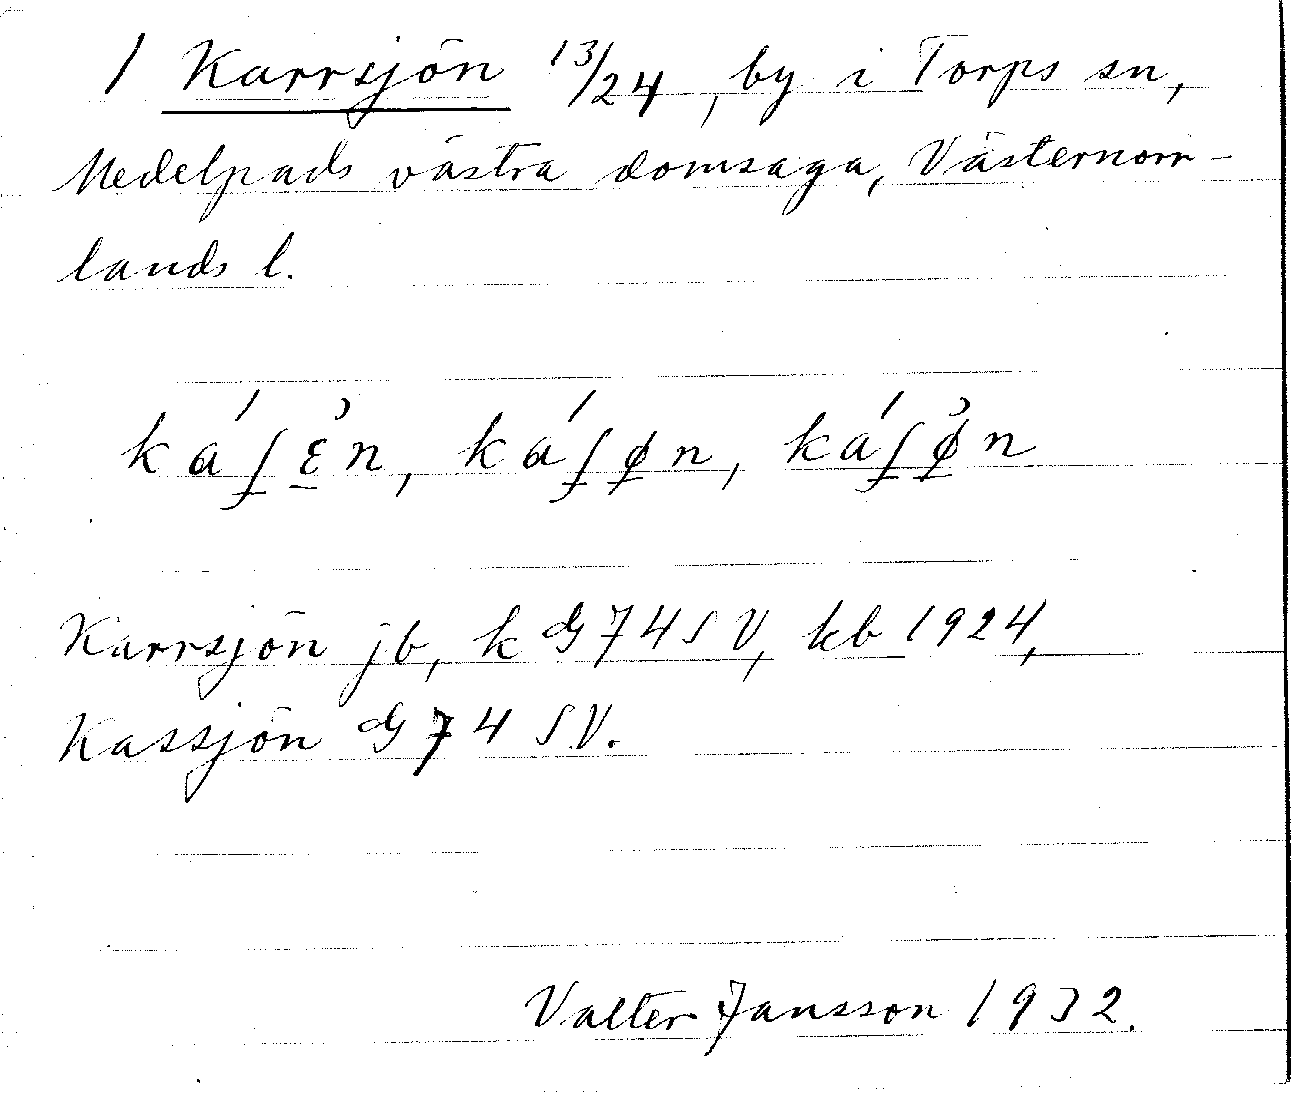 1 Karrsjön 13/24, by i Torps sn,
Medelpads västra domsaga, Västernorr-
lands l.
káʃɛ̠̉n, káʃø̠n, káʃø̠̉n
Karrsjön jb, k G 74 SV, kb 1924,
Kassjön G 74 SV.
Valter Jansson 1932.